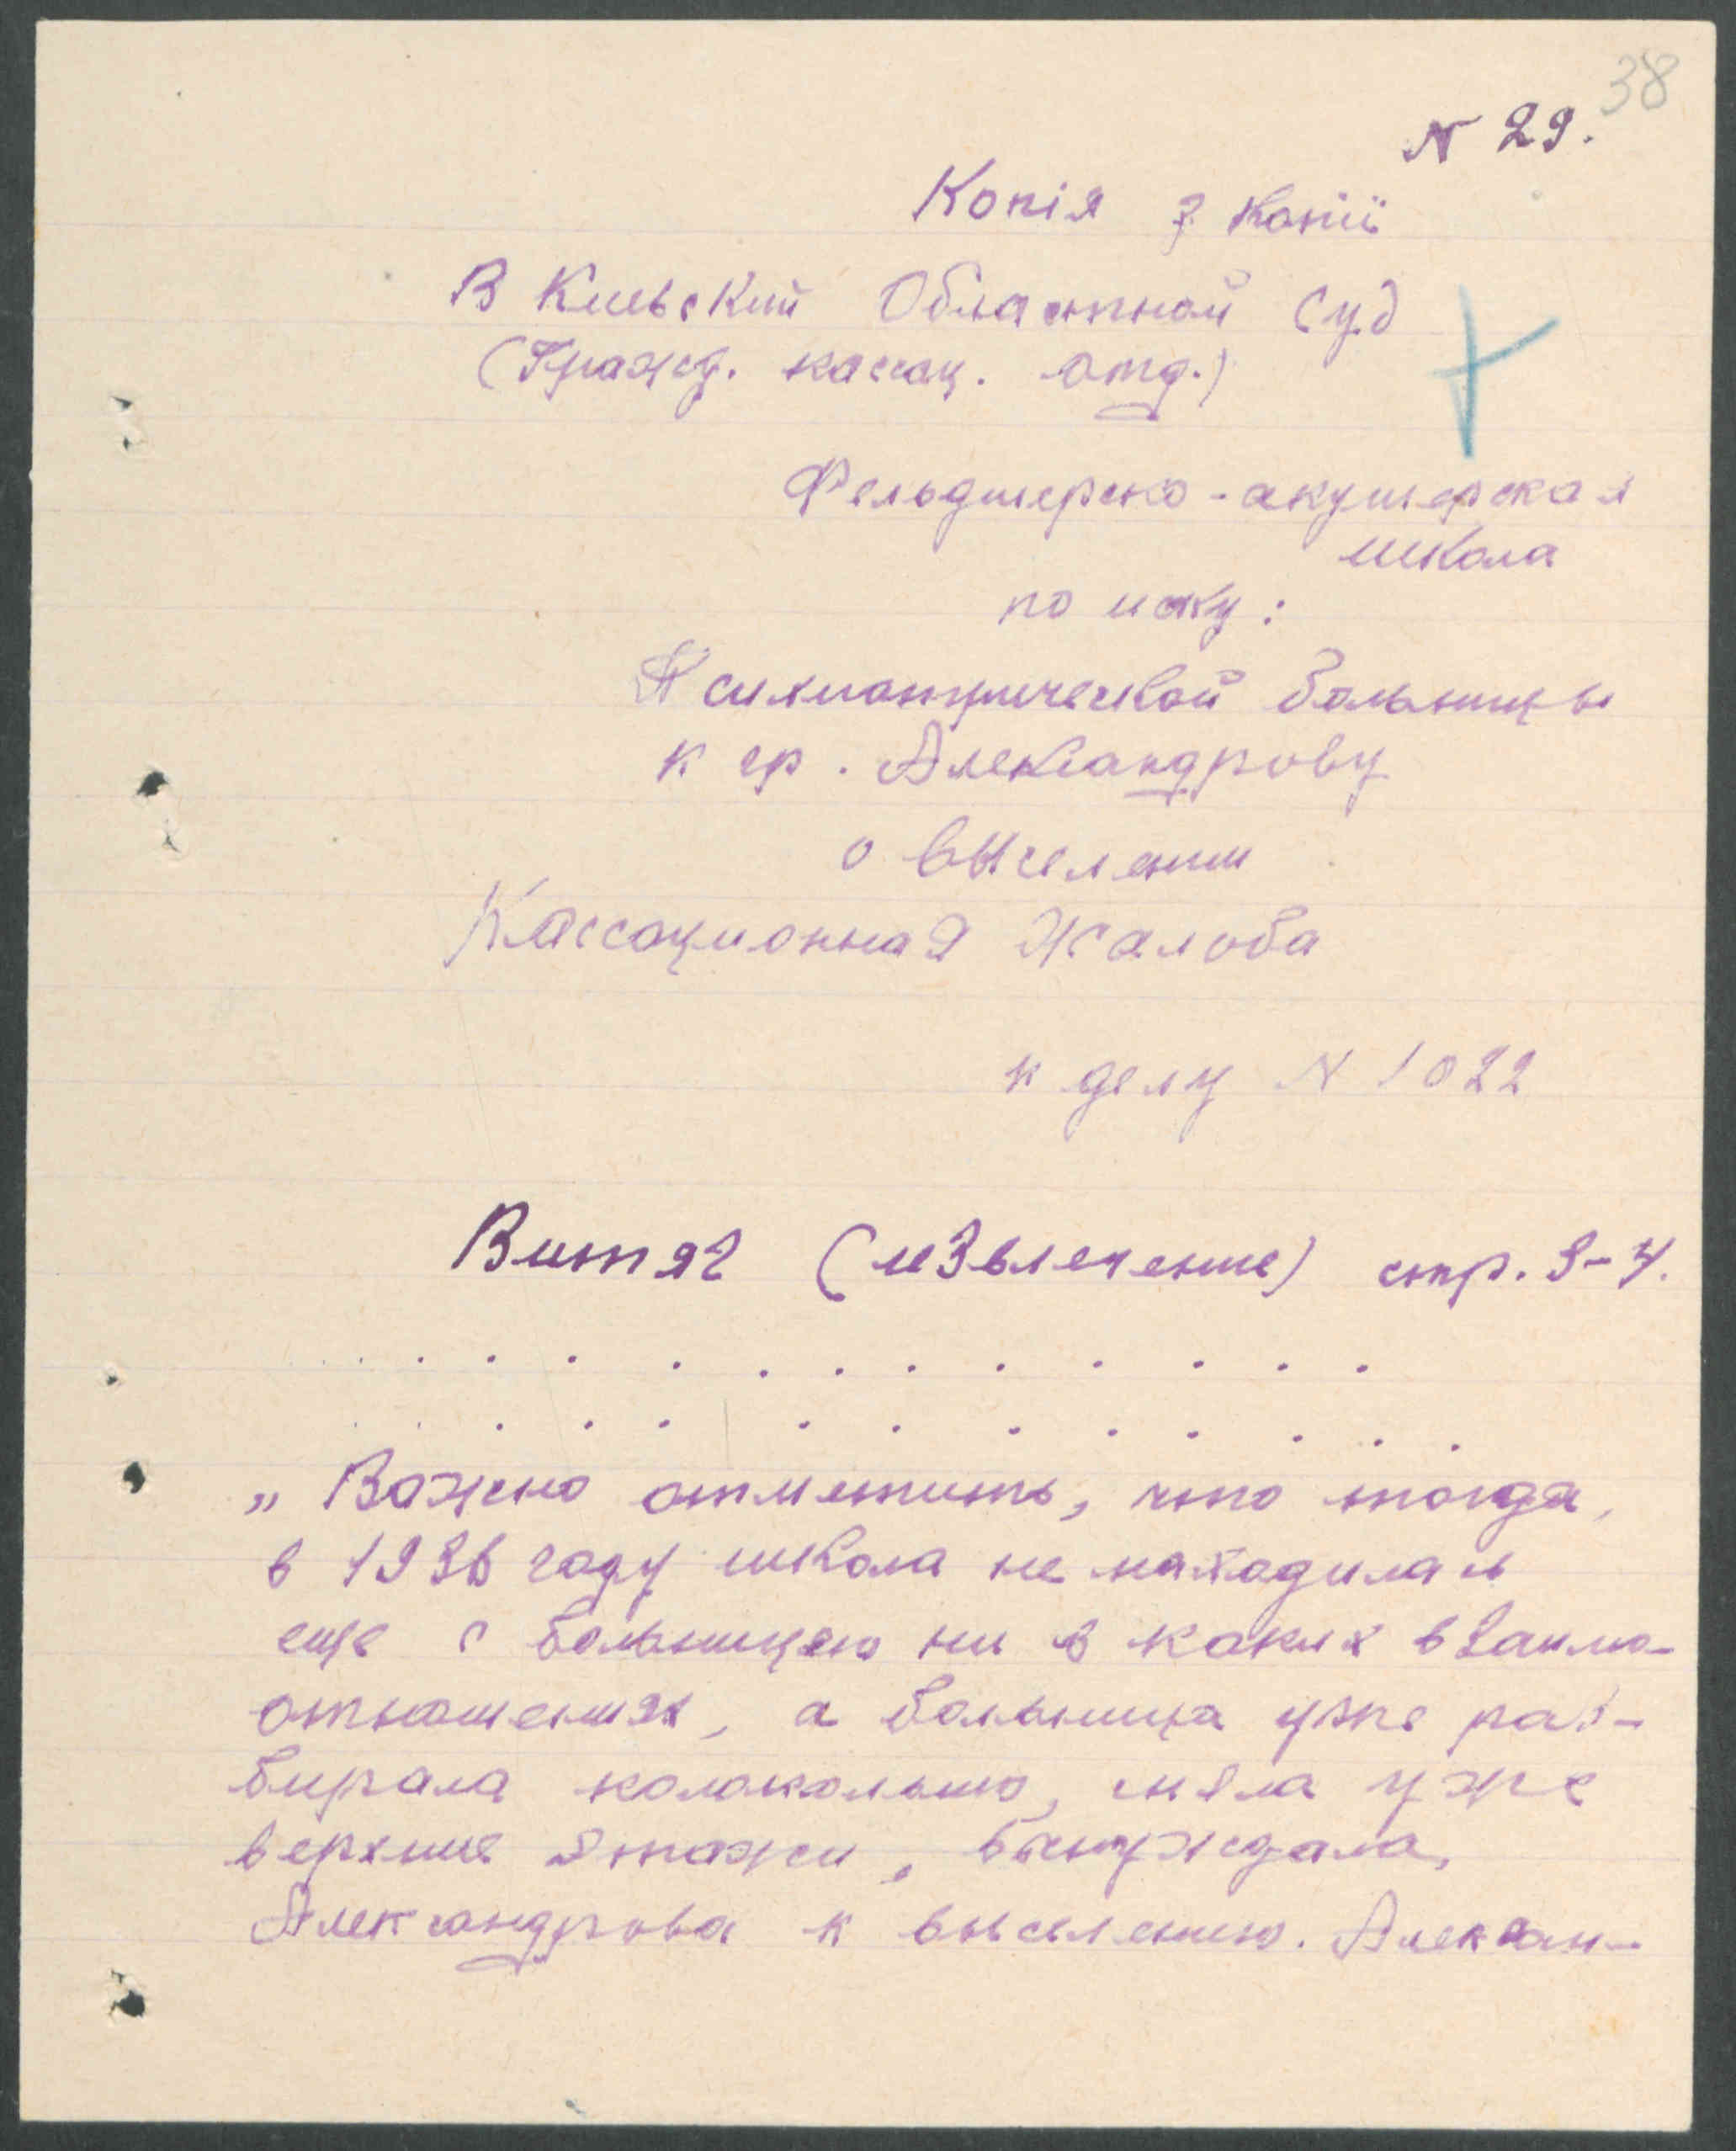 38
N 29.
Копія з копії
В Киевский Областной Суд
(Гражд. кассац. отд.)
Фельдшерско-акушерская
школа
по иску:
Психиатрической больницы
к гр. Александрову
о выселении
Кассационная Жалоба
к делу N 1022
Витяг (извлечение) стр. 3-4.
. . . . . . . . . . . . .
. . . . . . . . . . . . .
„Важно отметить, что тогда,
в 1936 году школа не находилась
еще с больницею ни в каких взаимо-
отношениях, а больница уже раз-
бирала колокольню, сняла уже
верхние этажи, вынуждала,
Александрова к выселению. Алексан-